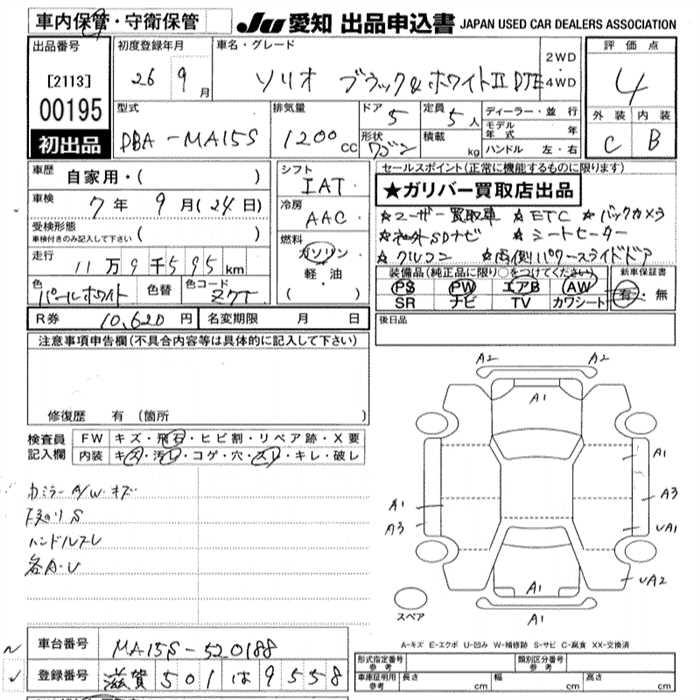 車内保管・守衛保管 JU 愛知 出品申込書 JAPAN USED CAR DEALERS ASSOCIATION
出品番号 初度登録年月 車名・グレード 評価点
[2113] 26 9月 ソリオ ブラック&ホワイトⅡ DJE 2WD・4WD 4
00195 型式 排気量 ドア 定員 ディーラー・並行 外装 内装
初出品 DBA-MA15S 1200cc 5 5人 モデル年式 年 C B
形状 ワゴン 積載 kg ハンドル 左・右
車歴 自家用・( ) シフト IAT セールスポイント(正常に機能するものに限ります)
★ガリバー買取店出品
車検 7年 9月(24日) 冷房 AAC ☆ユーザー買取車 ☆ETC ☆バックカメラ
受検形態 車検付きのみ記入して下さい ( ) ☆社外SDナビ ☆シートヒーター
走行 11万9千595km 燃料 ガソリン・軽油 ( ) ☆クルコン ☆両側パワースライドドア
色 パールホワイト 色替 色コード Z7T 装備品(純正品に限り○をつけてください) 新車保証書
PS PW エアB AW 有・無
SR ナビ TV カワシート
R券 10,620円 名変期限 月 日 後日品
注意事項申告欄(不具合内容等は具体的に記入して下さい)
修復歴 有(箇所
検査員記入欄 FW キズ・飛石・ヒビ割・リペア跡・X要
内装 キズ・汚レ・コゲ・穴・スレ・キレ・破レ
A2 A2
A1
A1
A1 A3
A3 UA1
UA2
A1
A1
カミラーA/W・キズ
ハンドルスレ
各A・U
スペア
A-キズ E-エクボ U-凹み W-補修跡 S-サビ C-腐食 XX-交換済
車台番号 MA15S-520188
登録番号 滋賀501は9558
形式指定番号 参考 類別区分番号 参考
車庫証明用 参考 長さ cm 幅 cm 高さ cm